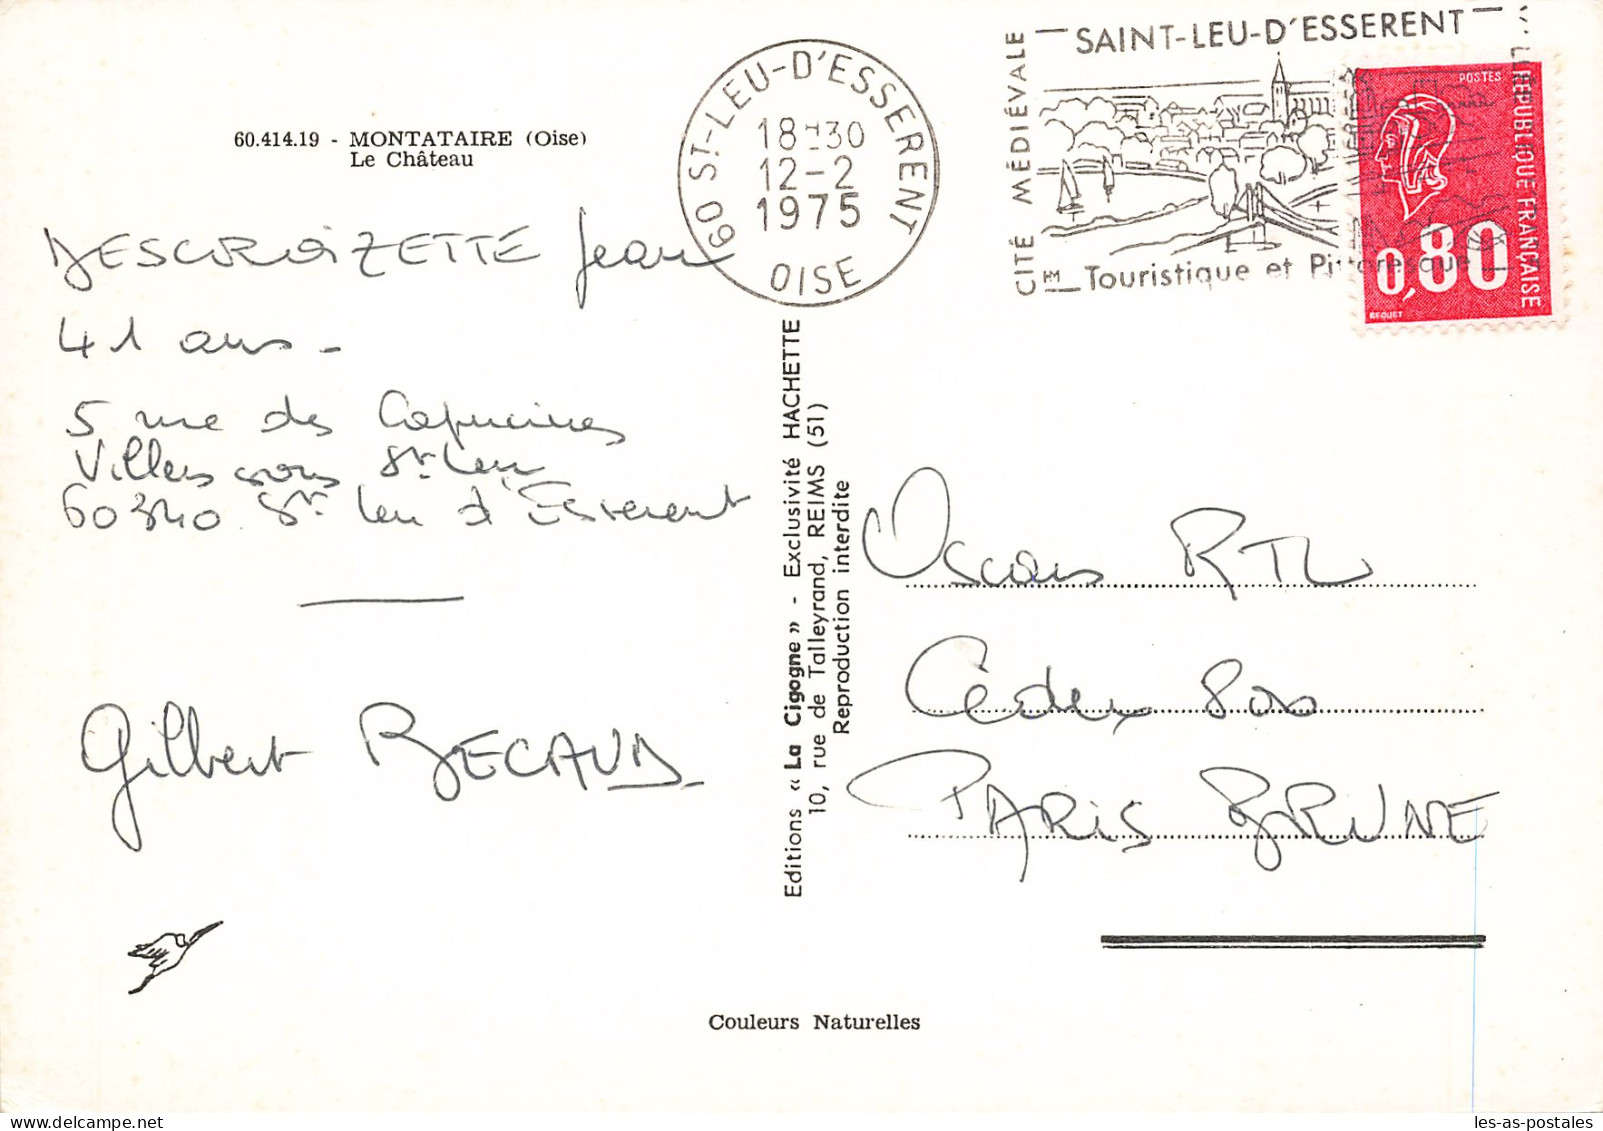 60.414.19 - MONTATAIRE (Oise)
Le Château
DESCROIZETTE Jean
41 ans -
5 rue des Capucines
Villers sous St Leu
60340 St Leu d'Esserent
Gilbert BECAUD
60 ST-LEU-D'ESSERENT
18H30
12-2
1975
OISE
CITÉ MÉDIÉVALE
SAINT-LEU-D'ESSERENT
Touristique et Pittoresque
POSTES
REPUBLIQUE FRANÇAISE
0,80
BEQUET
Editions « La Cigogne » - Exclusivité HACHETTE
10, rue de Talleyrand, REIMS (51)
Reproduction interdite
Oscars RTL
Cedex 800
PARIS BRUNE
Couleurs Naturelles
les-as-postales